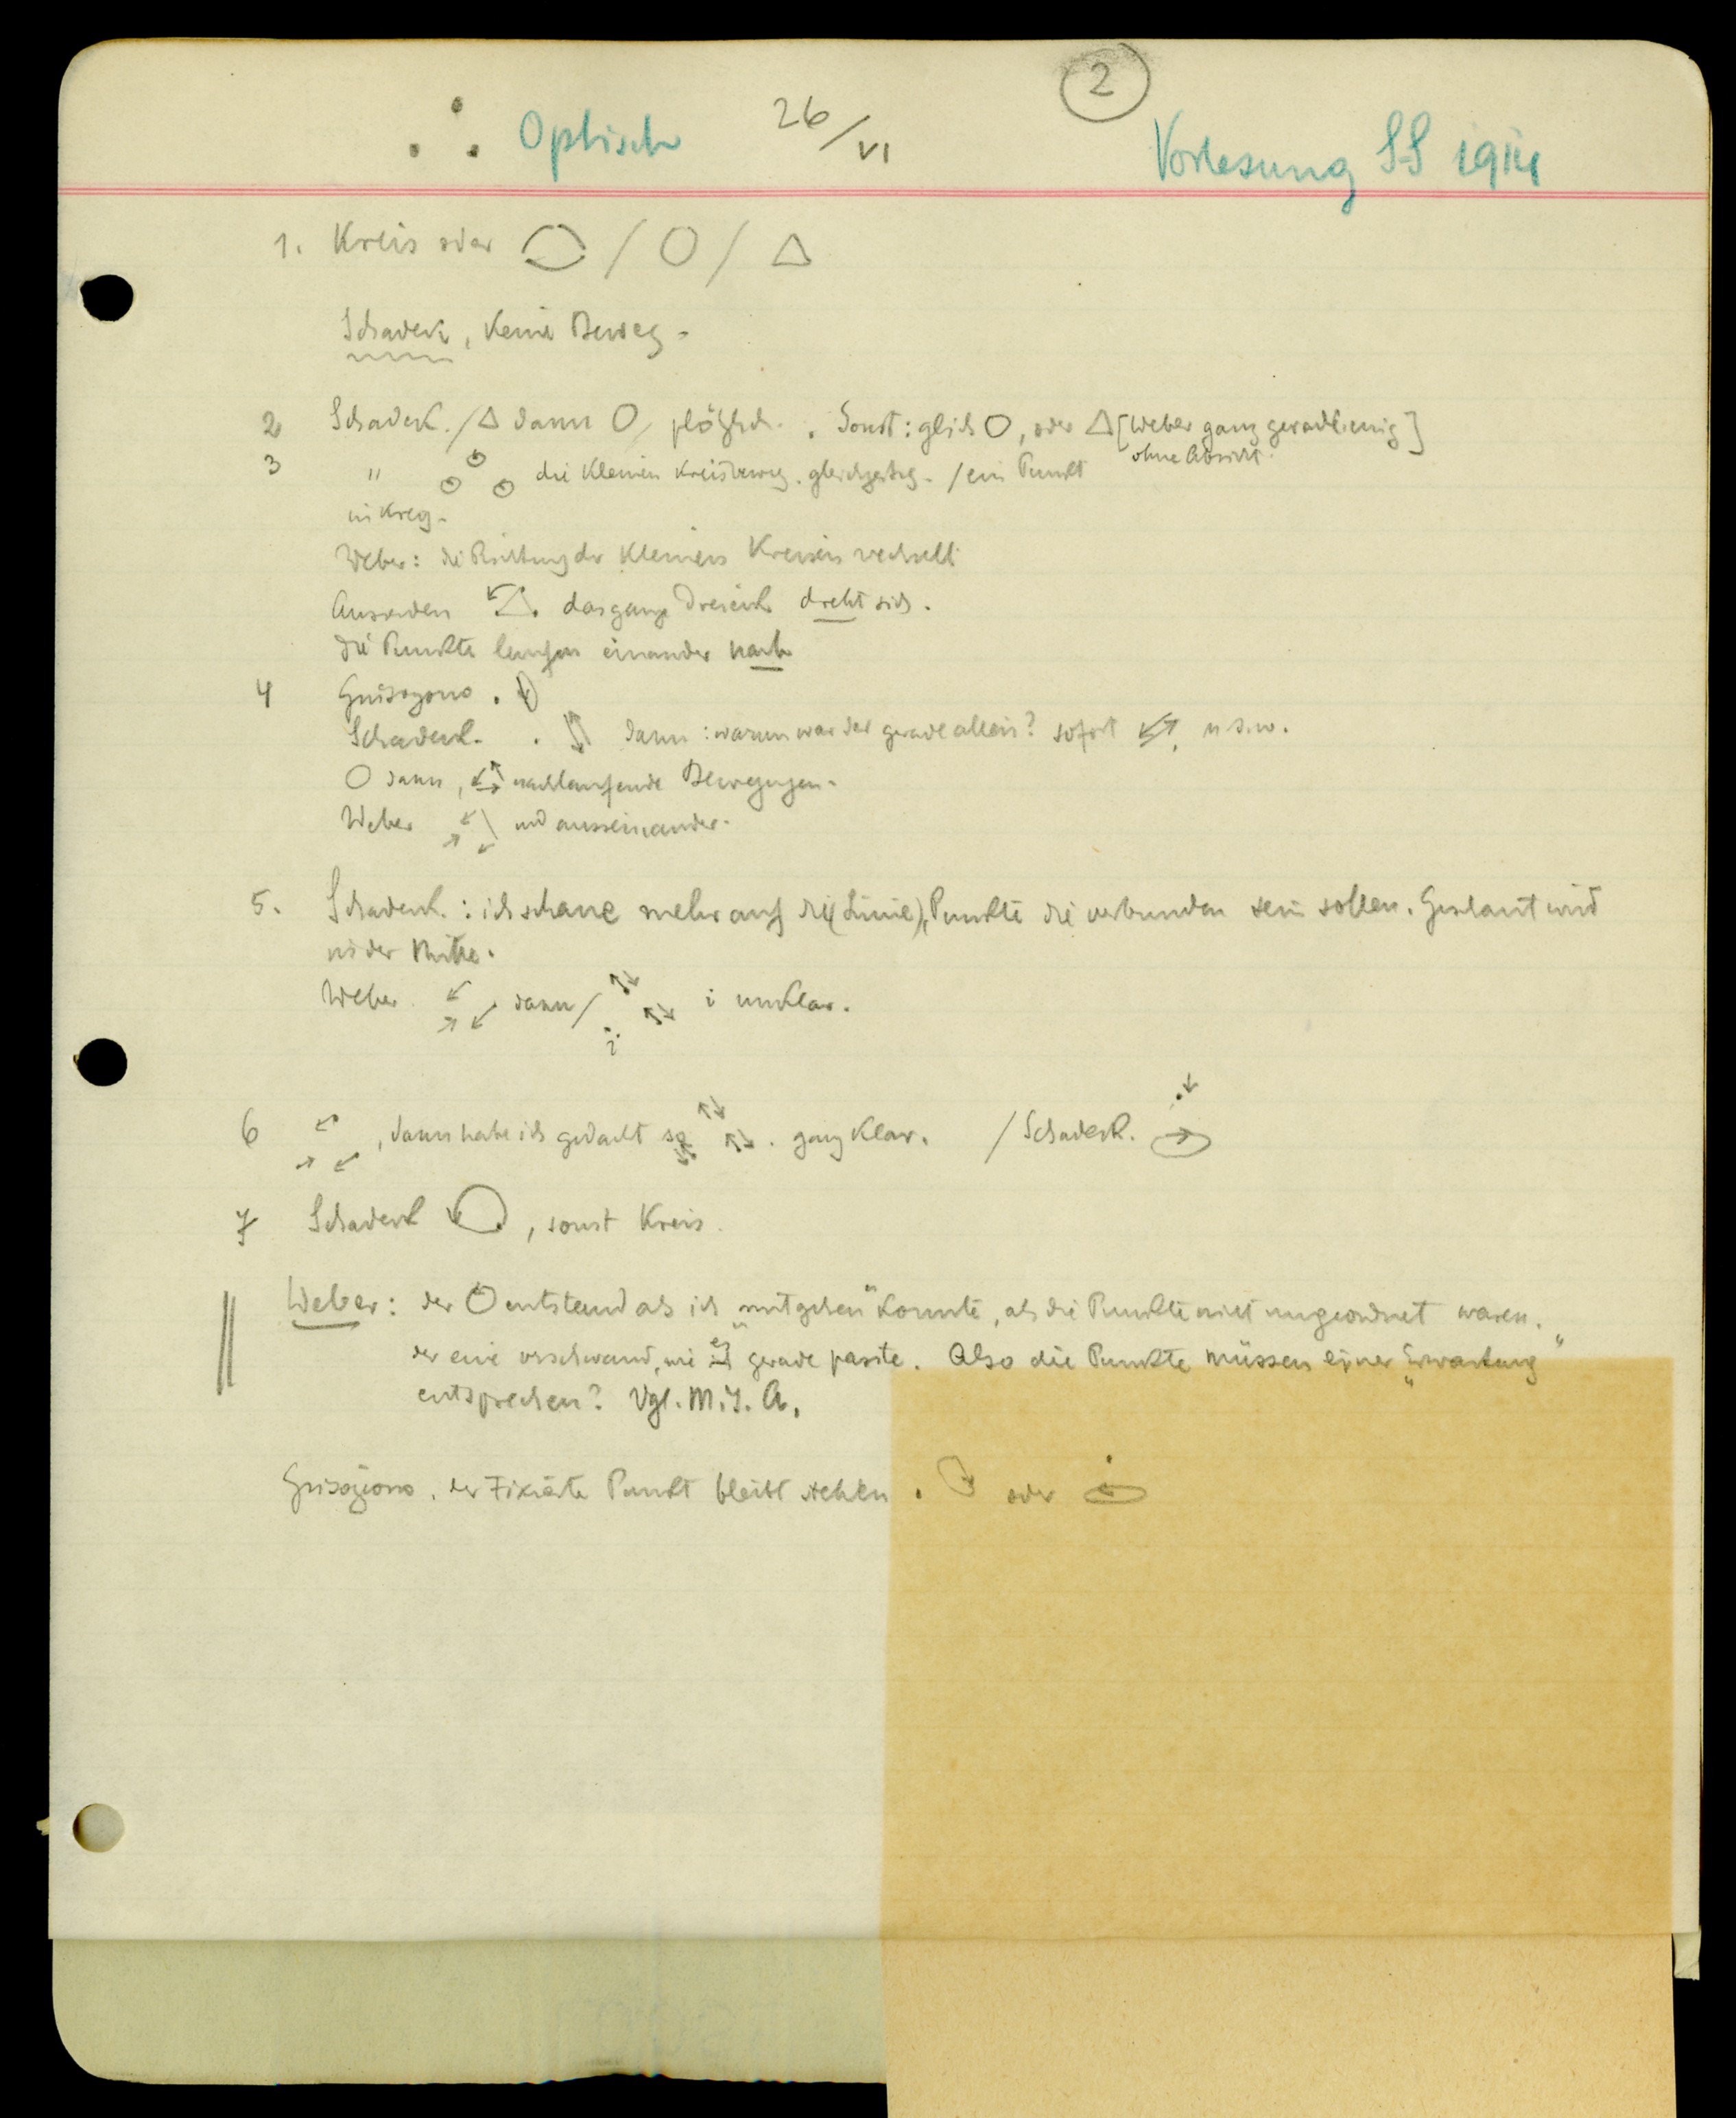 2
Optisch 26/VI Vorlesung SS 1914
1. Kreis oder / /
Schadek, keine Beweg.
2 Schadek. / dann plötzlich. Sonst: gleich , oder [Weber ganz geradlinig]
ohne Absicht.
3 " die kleinen Kreisbeweg. gleichzeitig. / ein Punkt
Weber: die Richtung der kleinen Kreise wechselt
das ganze Dreieck dreht sich.
die Punkte laufen einander nach
4 Grisogono .
Schadek. . dann: warum war der gerade allein? sofort u s.w.
dann, nachlaufende Bewegungen.
Weber und auseinander.
5. Schadek.: ich schaue mehr auf die (Linie), Punkte die verbunden sein sollen. Geschaut wird
in der Mitte.
Weber. dann / i unklar.
i
6 , dann habe ich gedacht so . ganz klar. / Schadek.
7 Schadek , sonst Kreis.
Weber: der entstand als ich „mitgehen" konnte, als die Punkte nicht ungeordnet waren.
der eine verschwand, wie es gerade passte. Also die Punkte müssen einer „Erwartung"
entsprechen? Vgl. M.
Grisogono, der Fixierte Punkt bleibt stehen . oder